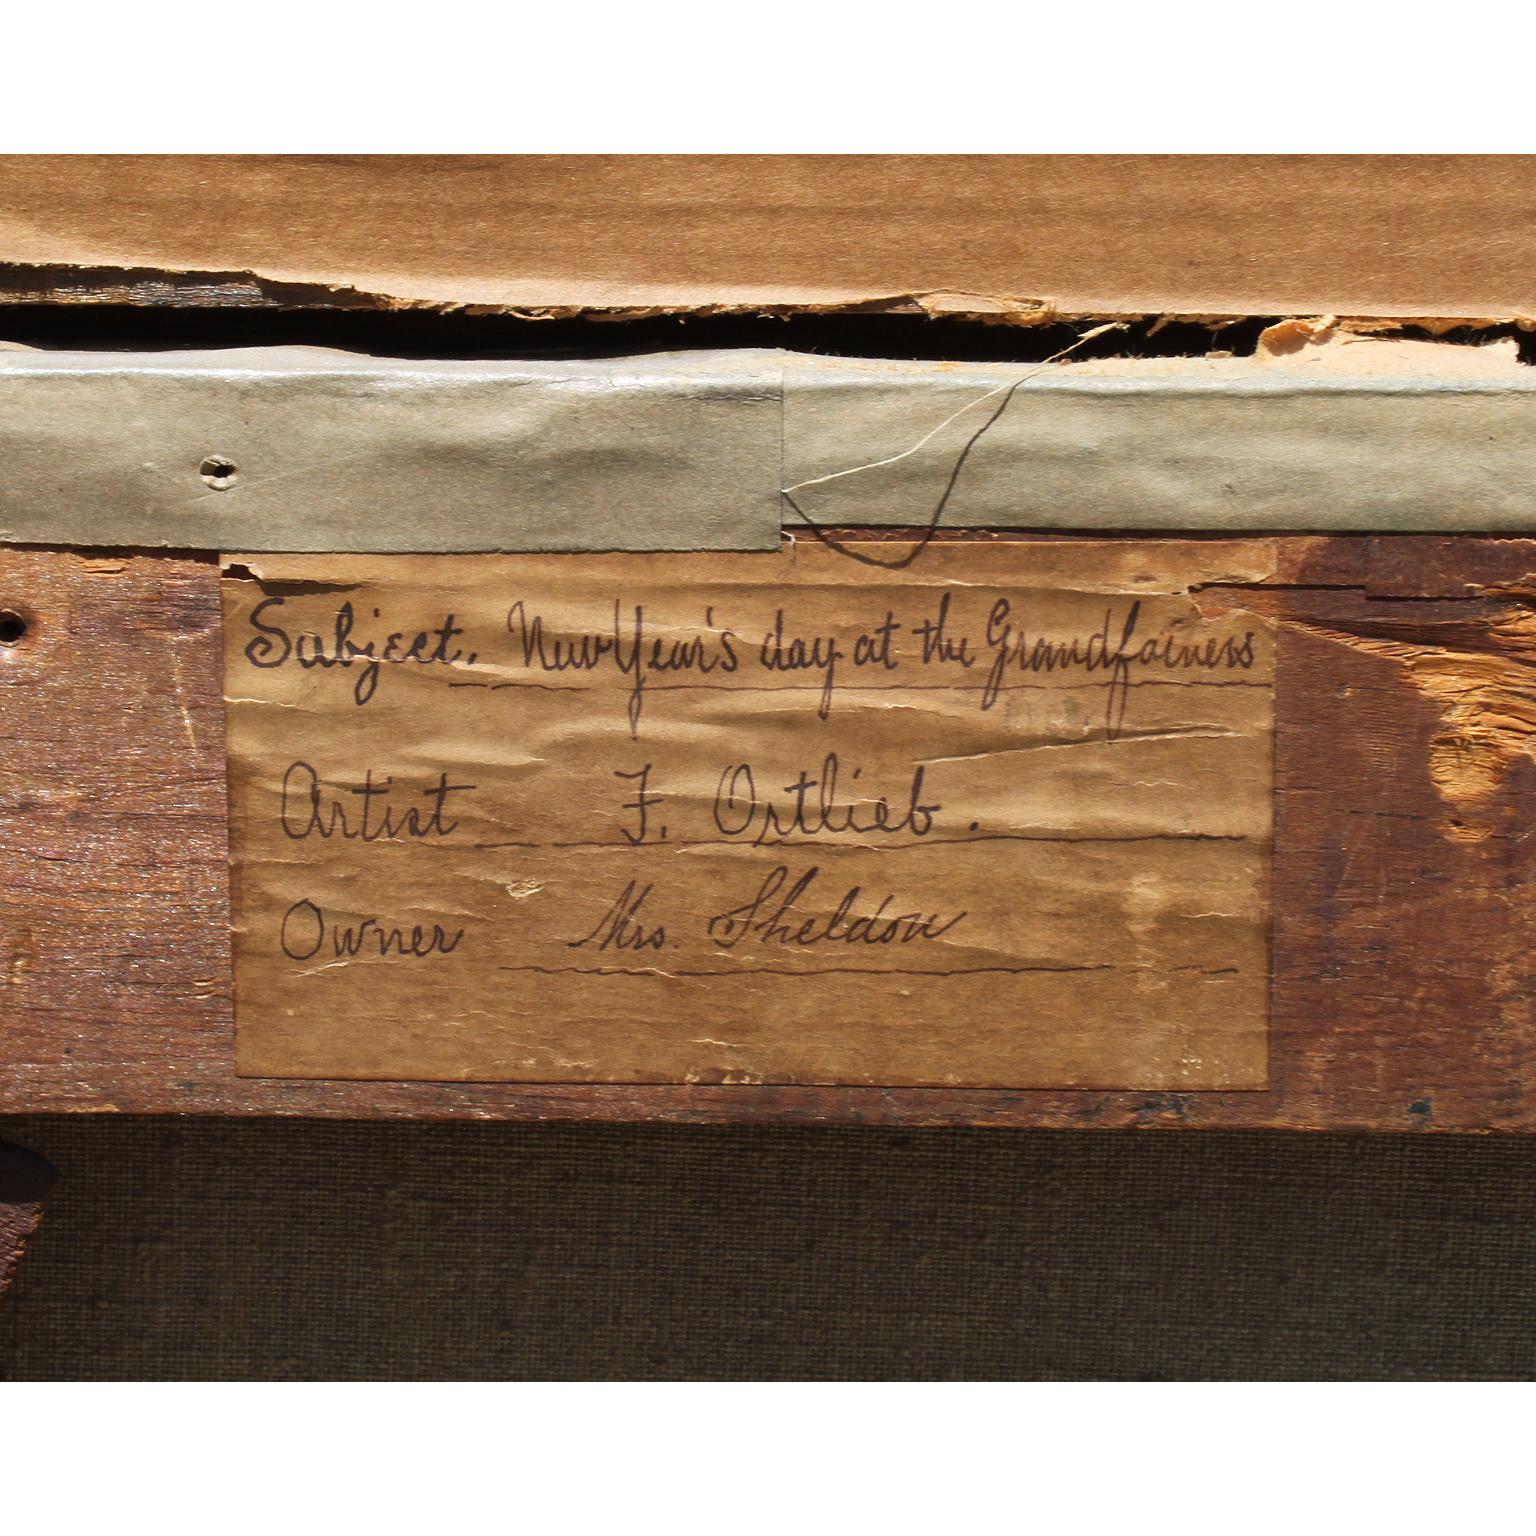 Subject. New Year's day at the Grandfainers
Artist F. Ortlieb.
Owner Mrs. Sheldon